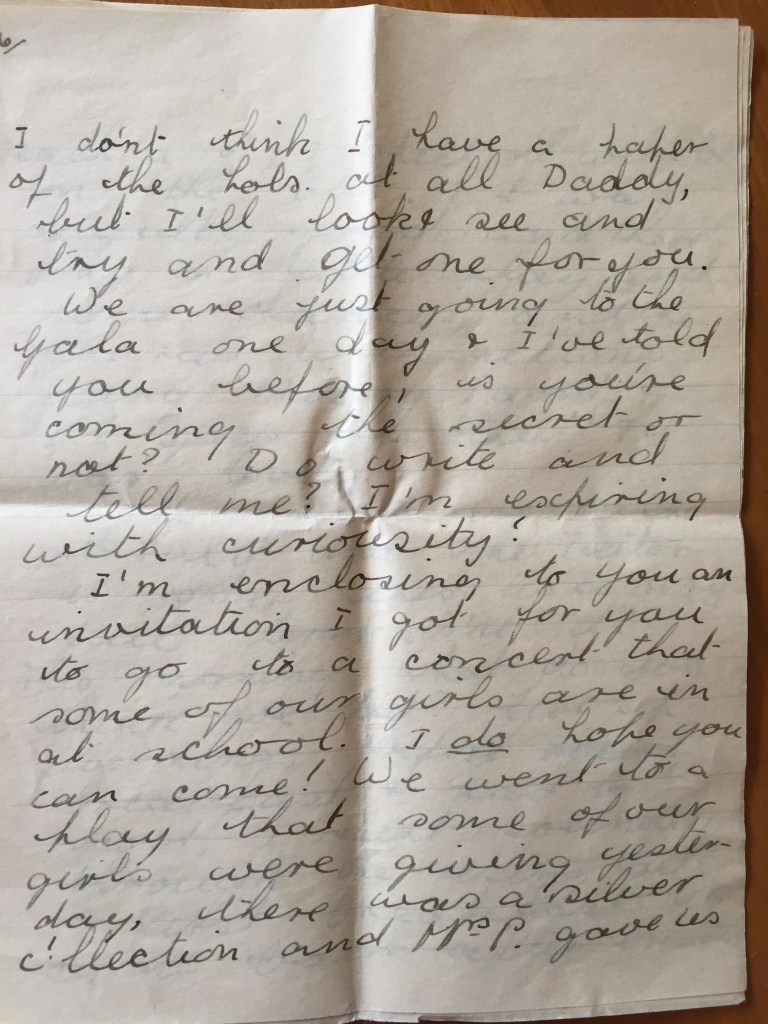 6/
I do'nt think I have a paper
of the hols. at all Daddy,
but I'll look & see and
try and get one for you.
We are just going to the
Gala one day & I've told
you before, is you're
coming the secret or
not? Do write and
tell me? I'm expiring
with curiousity!
I'm enclosing to you an
invitation I got for you
to go to a concert that
some of our girls are in
at school. I do hope you
can come! We went to a
play that some of our
girls were giving yester-
day, there was a silver
c'llection and Mrs P. gave us